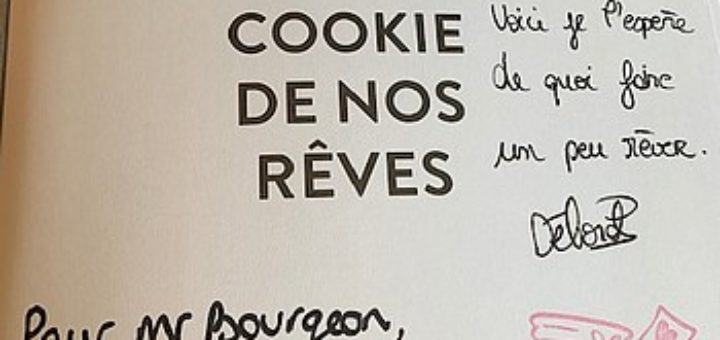 COOKIE
DE NOS
RÊVES
Voici je l'espère
de quoi faire
un peu rêver.
Pour Mr Bourgeon,